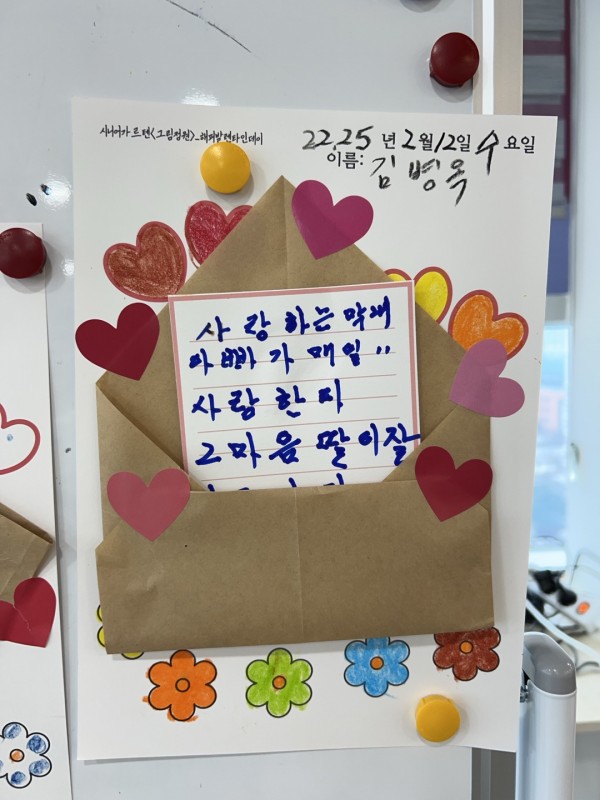 시니어가르텐<그림정원>_해피발렌타인데이
22,25 년 2월 12일 수 요일
이름: 김 병 옥
사 랑 하는 막내
아빠가 매일 ..
사랑 한 지
그 마음 딸이 잘